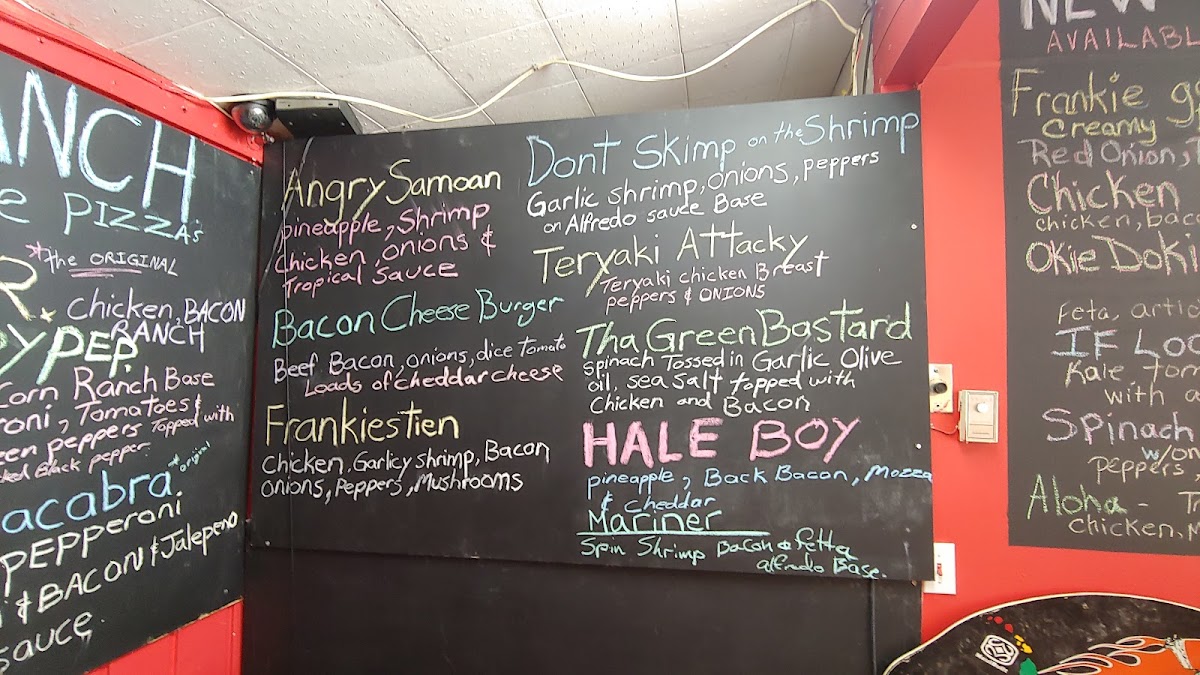 ANCH
PIZZAS
*the ORIGINAL
Chicken, BACON
RANCH
PEP.
Corn Ranch Base
Tomatoes &
peppers Topped with
Black pepper.
acabra *original
PEPPeroni
& BACON & Jalepeno
Sauce.
Angry Samoan
pineapple, Shrimp
Chicken, onions &
Tropical Sauce
Bacon Cheese Burger
Beef, Bacon, onions, dice Tomato
Loads of cheddar cheese
Frankiestien
Chicken, Garlicy shrimp, Bacon
onions, Peppers, Mushrooms
Dont Skimp on the Shrimp
Garlic shrimp, onions, peppers
on Alfredo sauce Base
Teryaki Attacky
Teryaki chicken Breast
peppers & ONIONS
Tha Green Bastard
Spinach Tossed in Garlic Olive
oil, sea salt topped with
Chicken and Bacon
HALE BOY
pineapple, Back Bacon, Mozza
& cheddar
Mariner
Spin Shrimp Bacon & fetta
alfredo Base.
NEW
AVAILABL
Frankie
Creamy
Red Onion,
Chicken
chicken, bac
Okie Doki
Feta, artic
IF Loo
Kale Tom
with a
Spinach
w/on
peppers
Aloha -
Chicken,